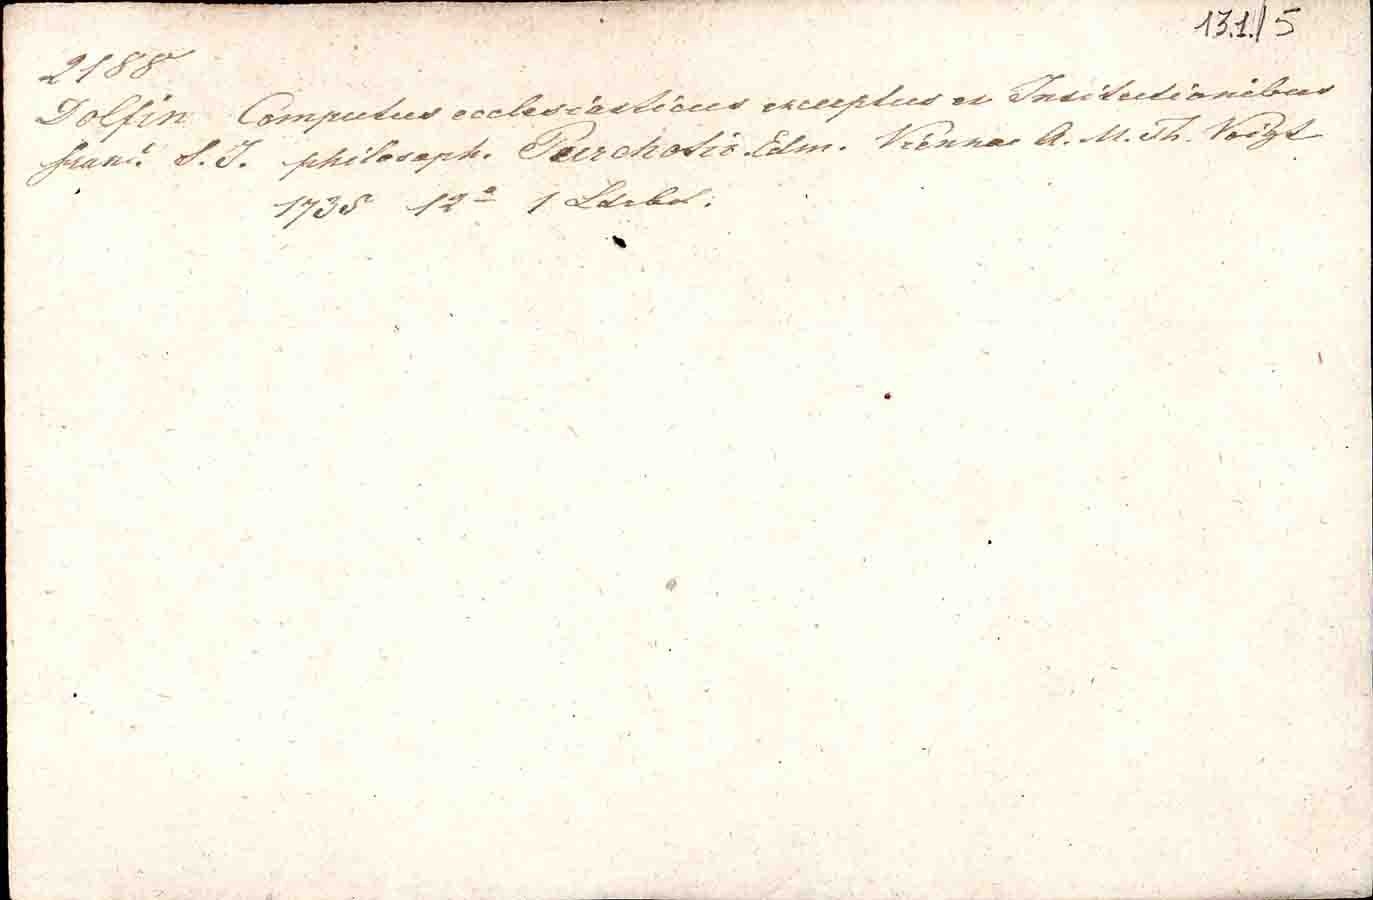 13.1./5
2188
Dolfin Computus ecclesiasticus exceptus ex Institutionibus
Franc. S. J. philosoph. Purchotio. Edm. Viennae A. M. Th. Voigt
1735 12° 1